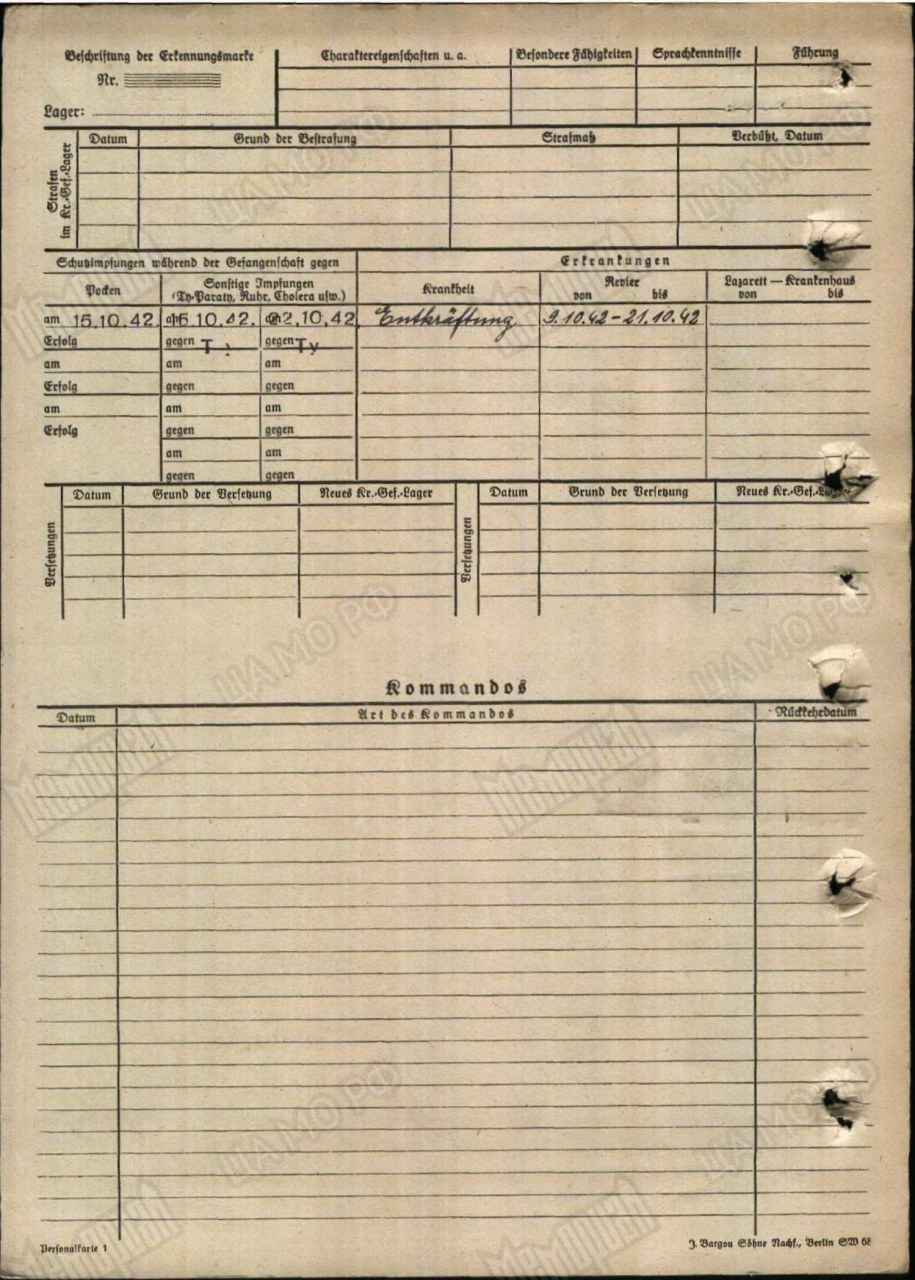 Beschriftung der Erkennungsmarke
Nr.
Lager:
Charaktereigenschaften u. a.
Besondere Fähigkeiten
Sprachkenntnisse
Führung
Strafen
im Kr.-Gef.-Lager
Datum
Grund der Bestrafung
Strafmaß
Verbüßt, Datum
Schutzimpfungen während der Gefangenschaft gegen
Erkrankungen
Pocken
Sonstige Impfungen
(Ty-Paraty, Ruhr, Cholera usw.)
Krankheit
Revier
von bis
Lazarett — Krankenhaus
von bis
am 15.10.42 15.10.42. 22.10.42 Entkräftung 9.10.42 – 21.10.42
Erfolg gegen T gegen Ty
am am am
Erfolg gegen gegen
am am am
Erfolg gegen gegen
am am
gegen gegen
Versetzungen
Datum
Grund der Versetzung
Neues Kr.-Gef.-Lager
Versetzungen
Datum
Grund der Versetzung
Neues Kr.-Gef.-Lager
Kommandos
Datum
Art des Kommandos
Rückkehrdatum
Personalkarte 1
J. Bargou Söhne Nachf., Berlin SW 68
ЦАМО РФ
Мемориал